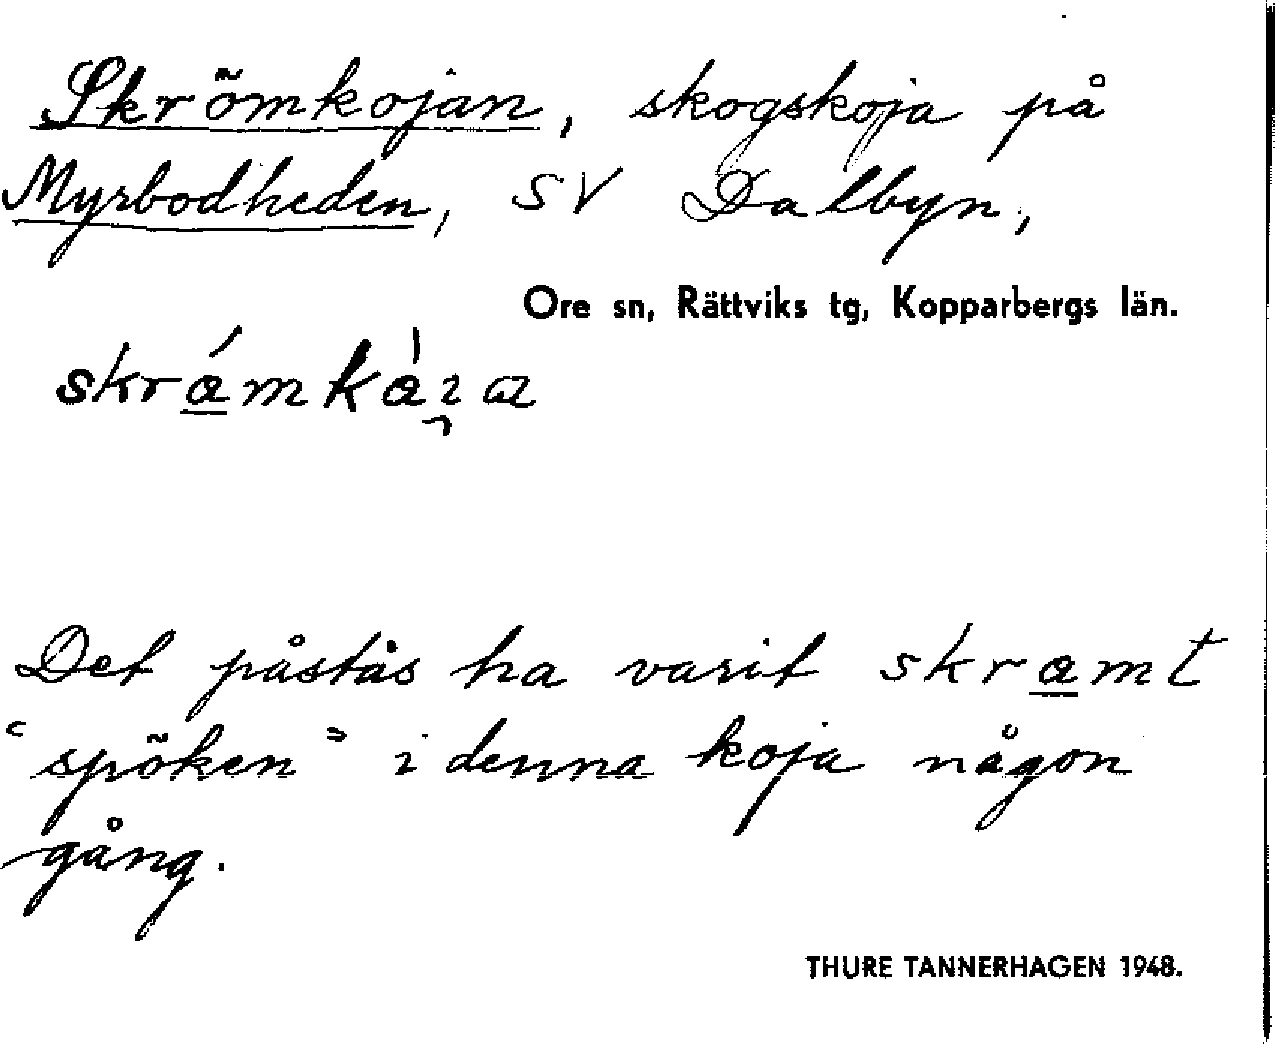 Skrömkojan, skogskoja på
Myrbodheden, SV Dalbyn,
Ore sn, Rättviks tg, Kopparbergs län.
Det påstås ha varit skræmt
"spöken" i denna koja någon
gång.
THURE TANNERHAGEN 1948.